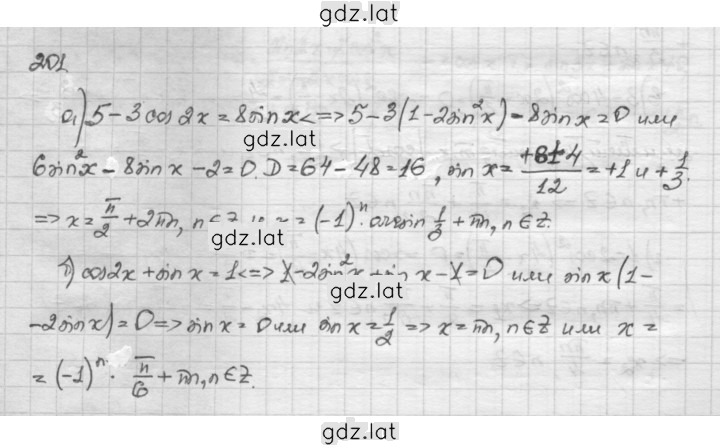 gdz.lat
201
а) 5 - 3 cos 2x = 8 sin x <=> 5 - 3(1 - 2sin²x) - 8 sin x = 0 или
gdz.lat
6 sin²x - 8 sin x - 2 = 0. D = 64 - 48 = 16, sin x = +8±4/12 = +1 и +1/3.
=> x = π/2 + 2πn, n ∈ Z = (-1)ⁿ · arcsin 1/3 + πn, n ∈ Z.
gdz.lat
б) cos 2x + sin x = 1 <=> 1 - 2sin²x + sin x - 1 = 0 или sin x (1 -
gdz.lat
- 2 sin x) = 0 => sin x = 0 или sin x = 1/2 => x = πn, n ∈ Z или x =
= (-1)ⁿ · π/6 + πn, n ∈ Z.
gdz.lat